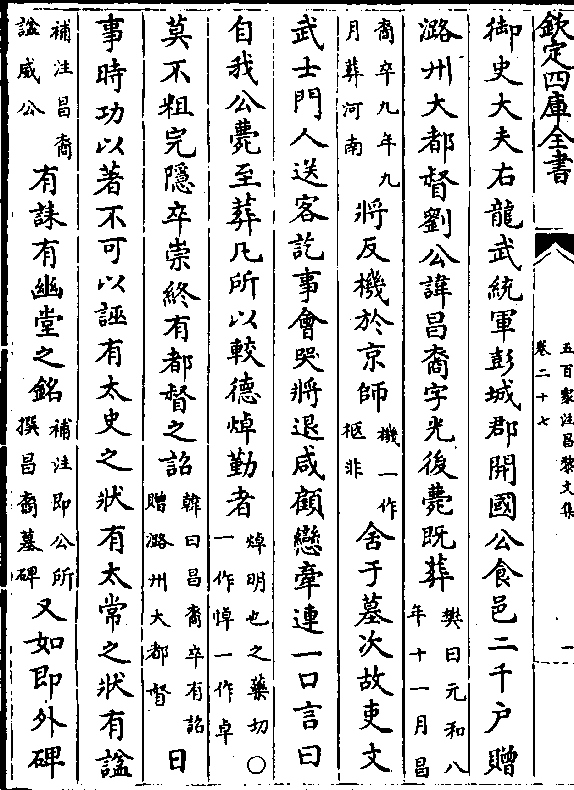 欽定四庫全書
五百家注昌黎文集
卷二十七
一
御史大夫右龍武統軍彭城郡開國公食邑二千戶贈
潞州大都督劉公諱昌裔字光後薨既葬樊曰元和八年十一月昌
裔卒九年九月葬河南將反機於京師機一作柩非舍于墓次故吏文
武士門人送客訖事會哭將退咸顧戀牽連一口言曰
自我公薨至葬凡所以較德焯勤者焯明也之藥切一作悼一作卓〇
莫不粗完隱卒崇終有都督之詔韓曰昌裔卒有詔贈潞州大都督日
事時功以著不可以誣有太史之狀有太常之狀有諡
補注昌裔諡威公有誄有幽堂之銘補注即公所撰昌裔墓碑又如即外碑